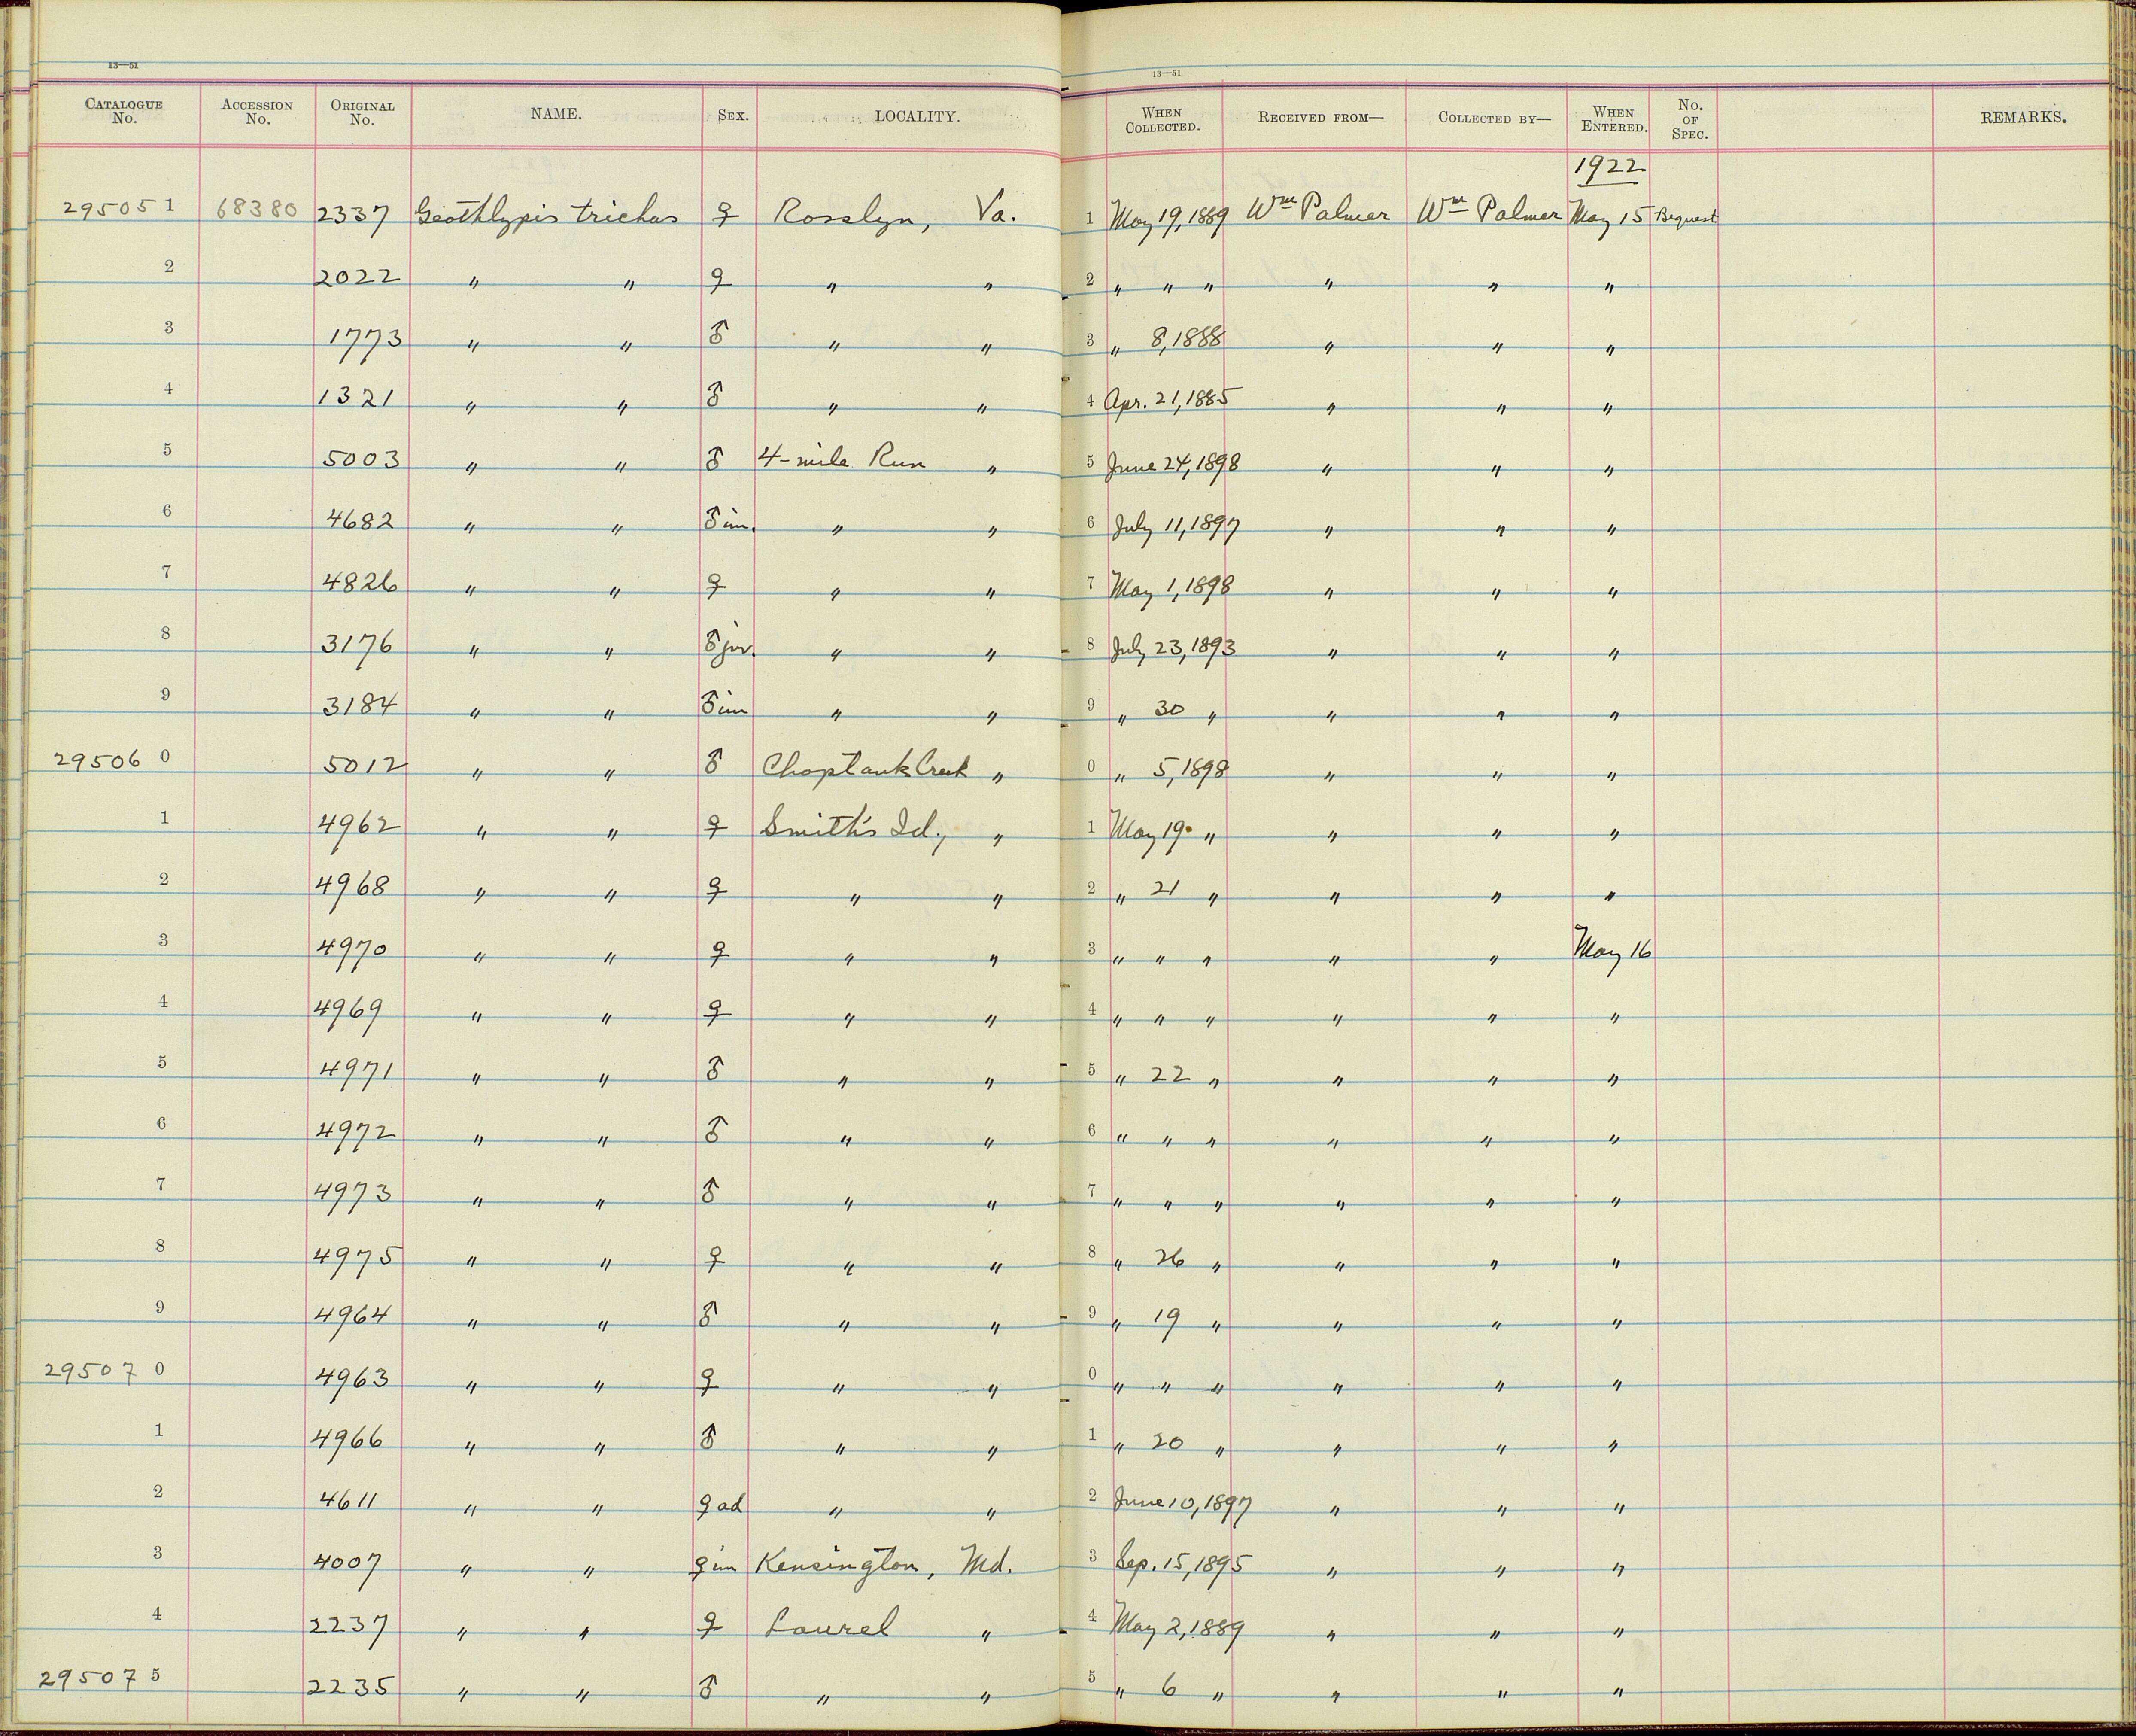 13—51 13—51
CATALOGUE No. ACCESSION No. ORIGINAL No. NAME. SEX. LOCALITY. WHEN COLLECTED. RECEIVED FROM— COLLECTED BY— WHEN ENTERED. No. OF SPEC. REMARKS.
1922
295051 68380 2337 Geothlypis trichas ♀ Rosslyn, Va. 1 May 19, 1889 Wm Palmer Wm Palmer May 15 Bequest
2 2022 " " ♀ " " 2 " " " " " "
3 1773 " " ♂ " " 3 " 8, 1888 " " "
4 1321 " " ♂ " " 4 Apr. 21, 1885 " " "
5 5003 " " ♂ 4-mile Run " 5 June 24, 1898 " " "
6 4682 " " ♂ im. " " 6 July 11, 1897 " " "
7 4826 " " ♀ " " 7 May 1, 1898 " " "
8 3176 " " ♂ juv. " " 8 July 23, 1893 " " "
9 3184 " " ♂ im " " 9 " 30 " " " "
295060 5012 " " ♂ Choptank Creek " 0 " 5, 1898 " " "
1 4962 " " ♀ Smith's Id., " 1 May 19 " " " "
2 4968 " " ♀ " " 2 " 21 " " " "
3 4970 " " ♀ " " 3 " " " " " May 16
4 4969 " " ♀ " " 4 " " " " " "
5 4971 " " ♂ " " 5 " 22 " " " "
6 4972 " " ♂ " " 6 " " " " " "
7 4973 " " ♂ " " 7 " " " " " "
8 4975 " " ♀ " " 8 " 26 " " " "
9 4964 " " ♂ " " 9 " 19 " " " "
295070 4963 " " ♀ " " 0 " " " " " "
1 4966 " " ♂ " " 1 " 20 " " " "
2 4611 " " ♀ ad " " 2 June 10, 1897 " " "
3 4007 " " ♀ im Kensington, Md. 3 Sep. 15, 1895 " " "
4 2237 " " ♀ Laurel " 4 May 2, 1889 " " "
295075 2235 " " ♂ " " 5 " 6 " " " "